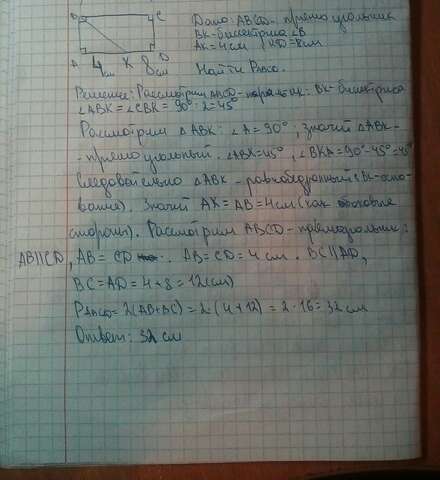 B C
A 4 см K 8 см D
Дано: ABCD - прямоугольник
BK - биссектриса ∠B
AK = 4 см, KD = 8 см
Найти PABCD.
Решение: Рассмотрим ABCD - : BK - биссектриса
∠ABK = ∠CBK = 90° : 2 = 45°
Рассмотрим △ABK: ∠A = 90°, значит △ABK -
- прямоугольный. ∠ABK = 45°, ∠BKA = 90° - 45° = 45°
Следовательно △ABK - равнобедренный (BK - осно-
вание). Значит AK = AB = 4 см (как боковые
стороны). Рассмотрим ABCD - прямоугольник:
AB||CD, AB = CD. AB = CD = 4 см. BC||AD,
BC = AD = 4 + 8 = 12 (см)
PABCD = 2(AB + BC) = 2 · (4 + 12) = 2 · 16 = 32 см
Ответ: 32 см